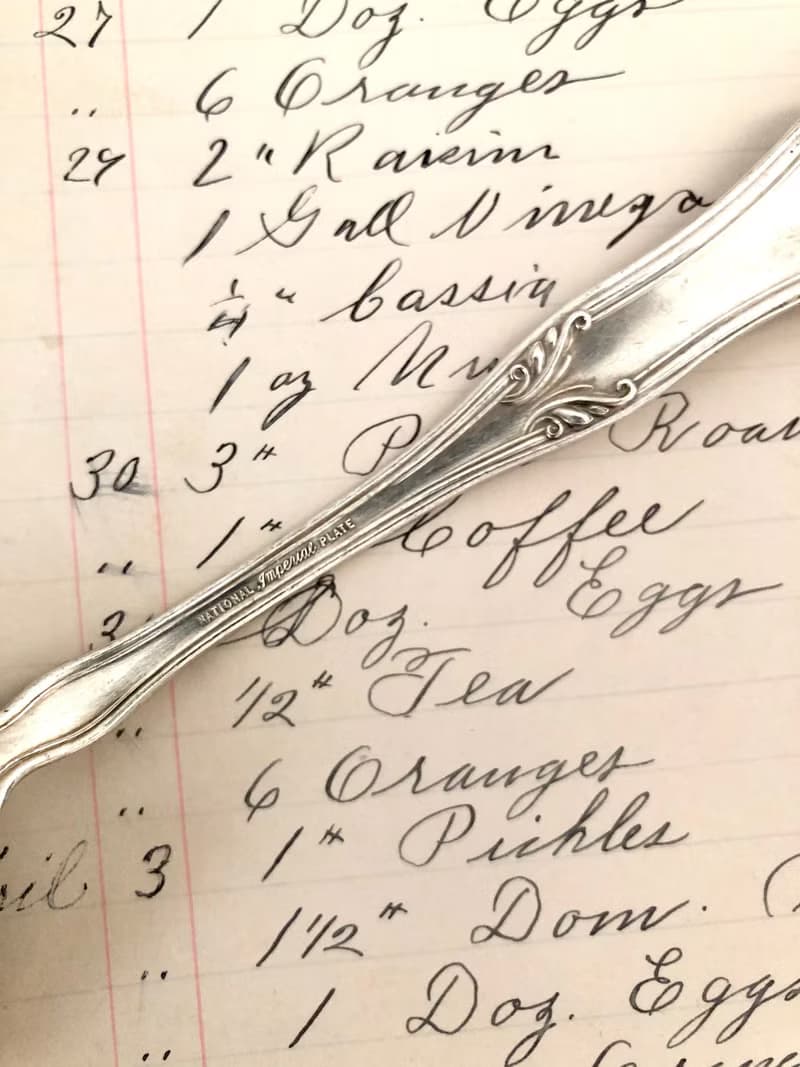 27 1 Doz. Eggs
" 6 Oranges
29 2 " Raisins
1 Gall Vinega
1/4 " Cassia
1 oz
30 3 # Roa
" 1 # Coffee
Doz. Eggs
" 1/2 # Tea
" 6 Oranges
3 1 # Pickles
" 1 1/2 # Dom.
" 1 Doz. Eggs
NATIONAL Imperial PLATE